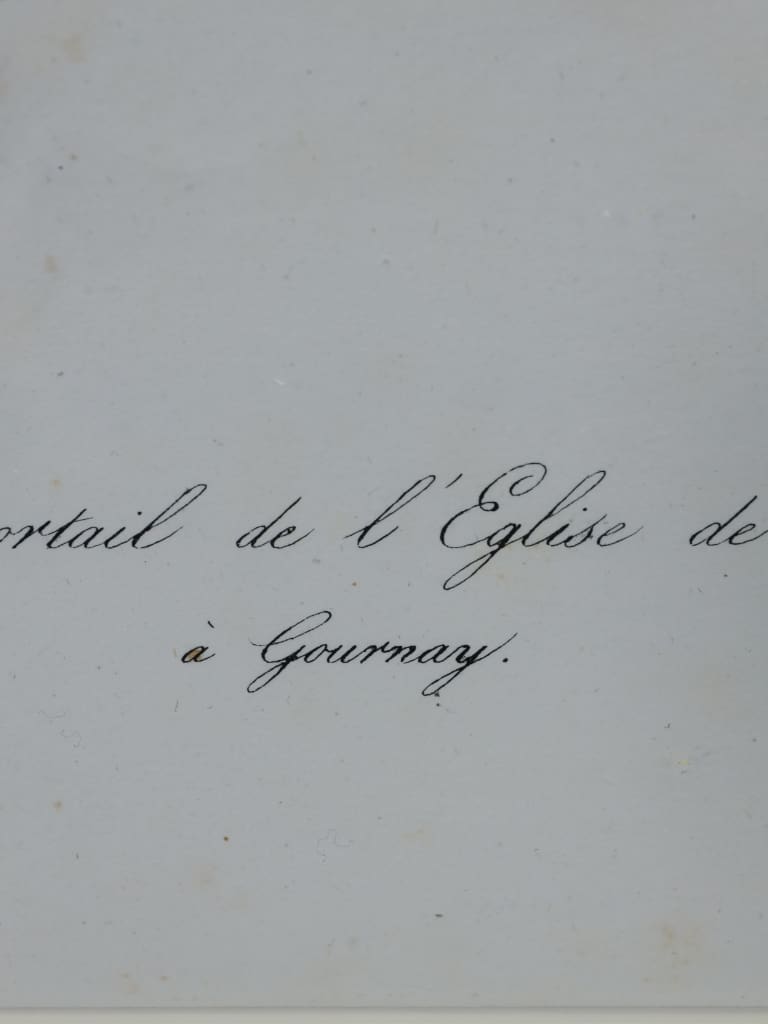 ortail de l'Eglise de
à Gournay.